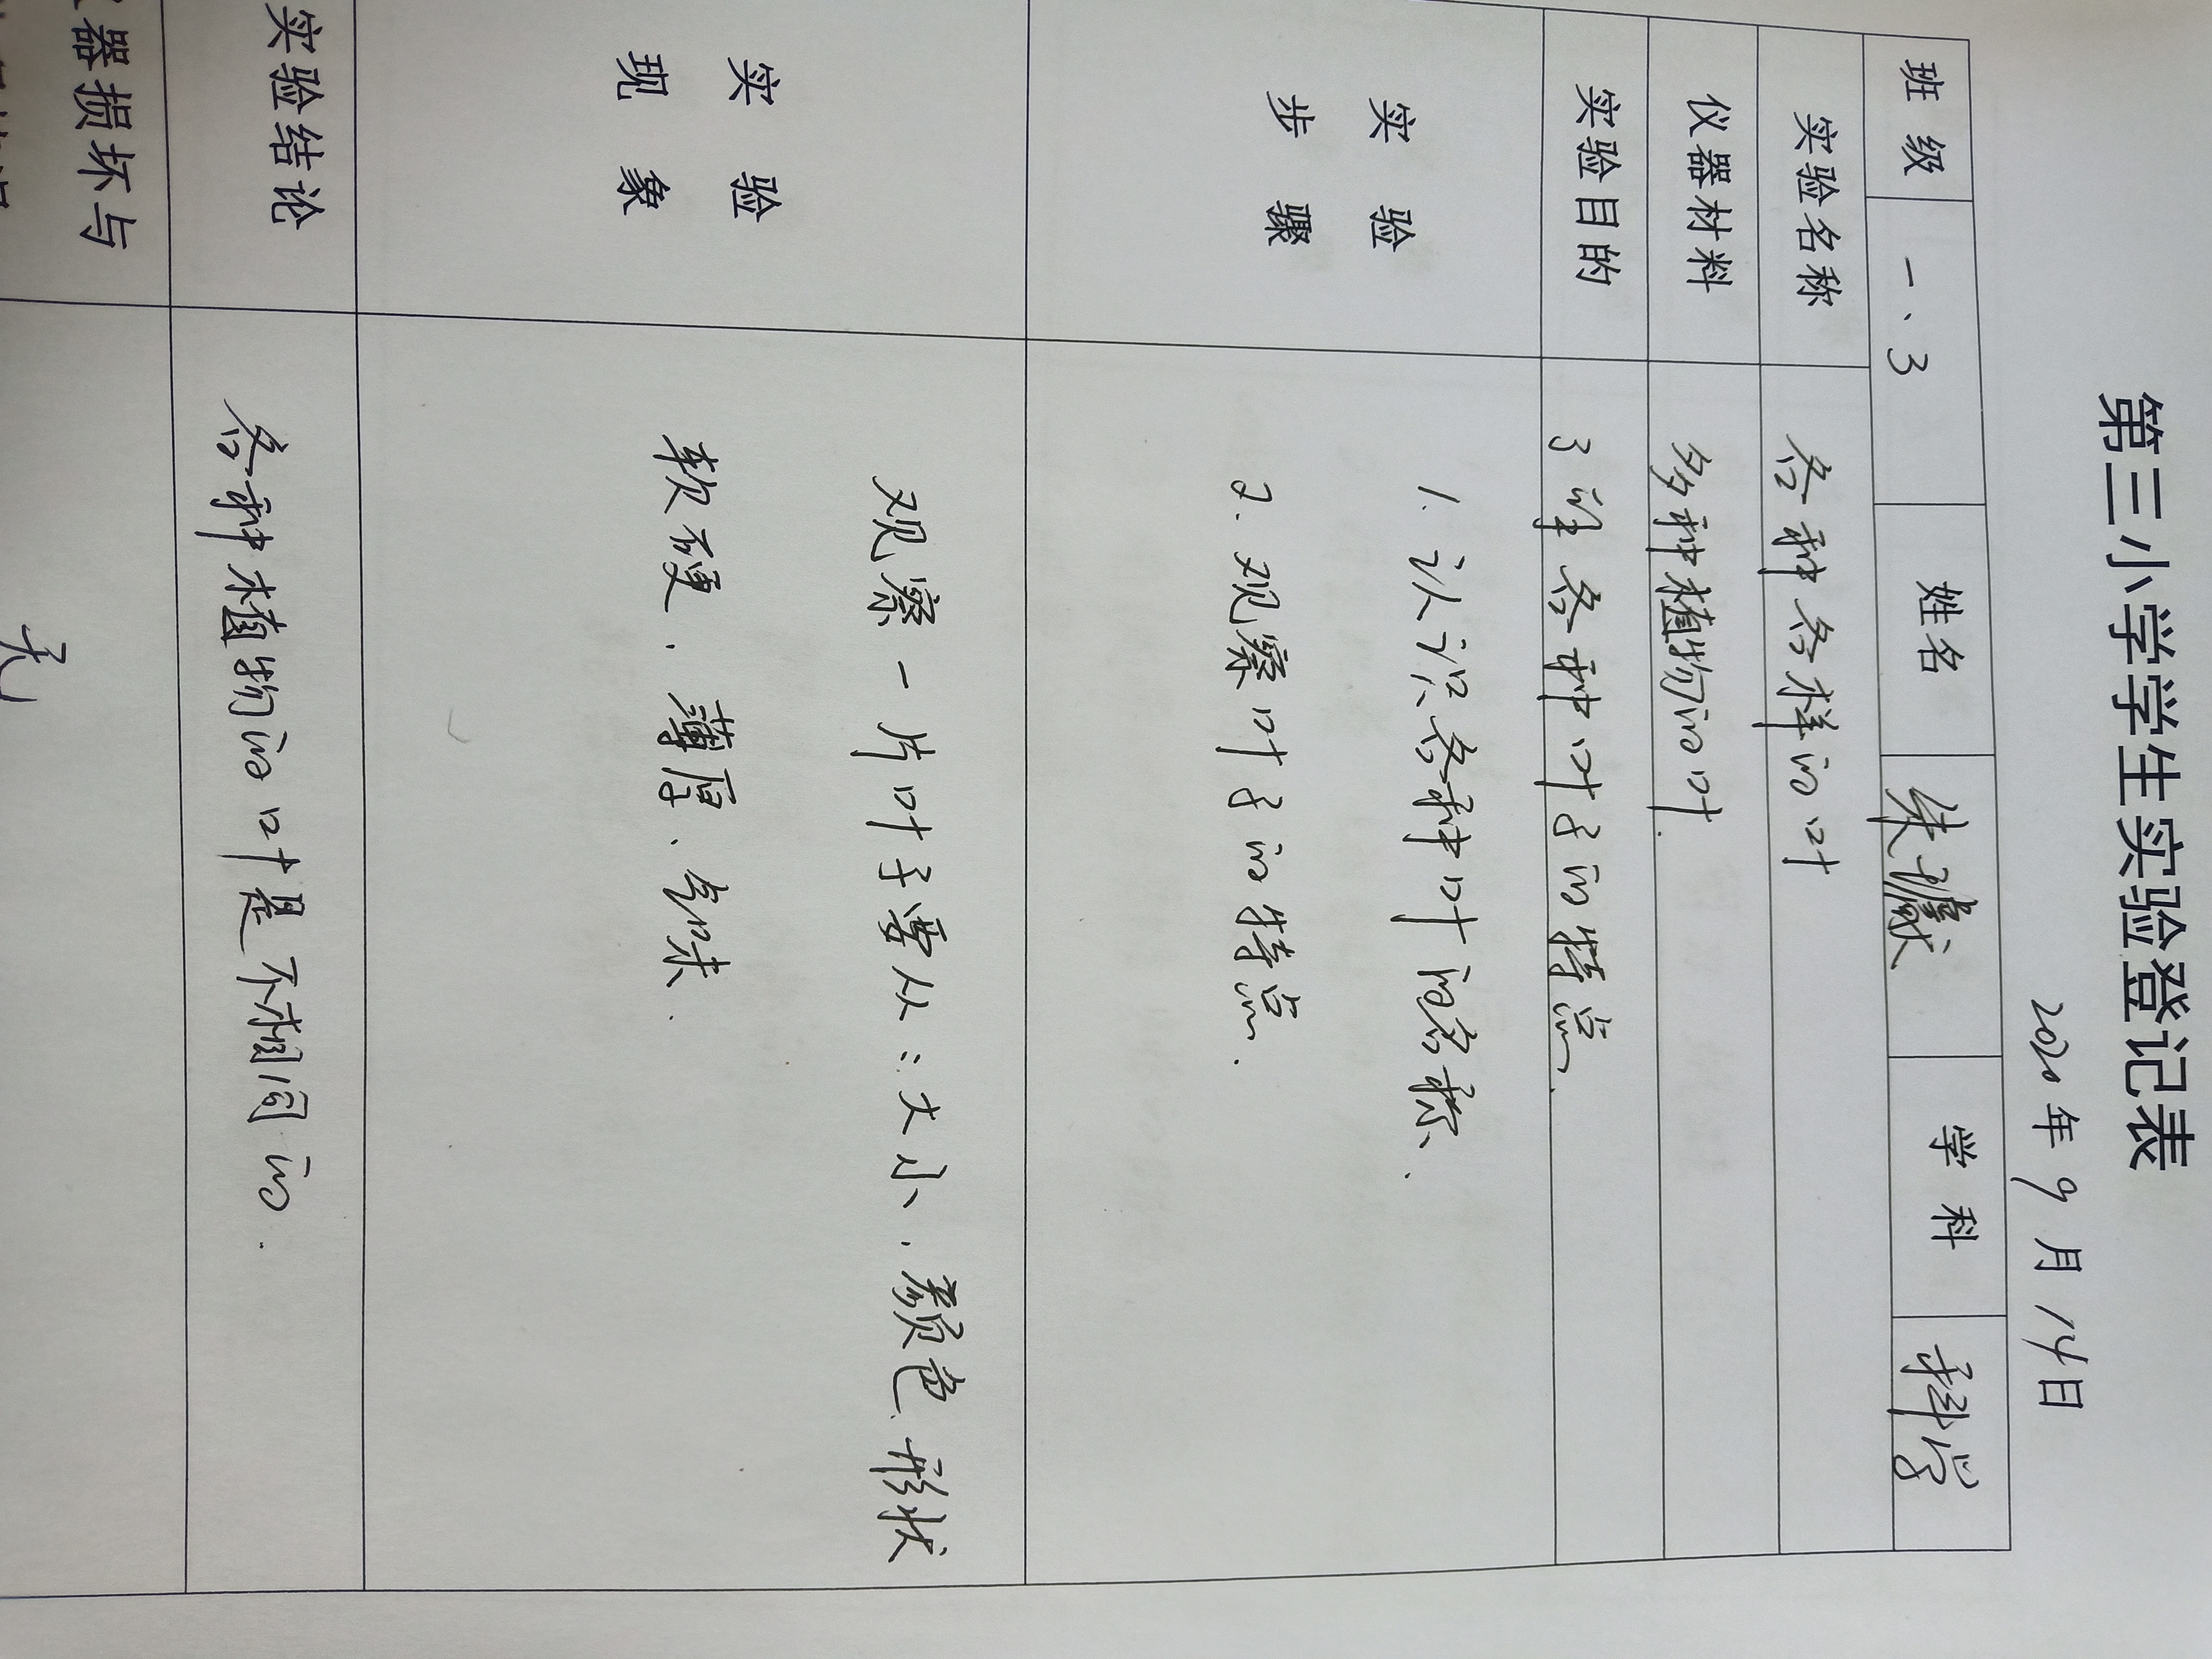 第三小学学生实验登记表
2020年9月14日
班级 一、3 姓名 朱 学科 科学
实验名称 各种各样的叶
仪器材料 多种植物的叶.
实验目的 了解各种叶子的特点.
实验步骤 1. 认识各种叶的名称.
2. 观察叶子的特点.
实验现象 观察一片叶子要从:大小、颜色、形状
软硬、薄厚、气味.
实验结论 各种植物的叶是不相同的.
器损坏与 无